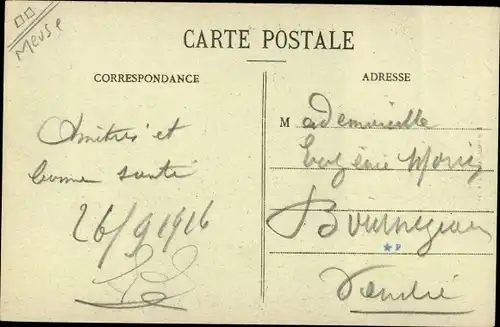 Meuse
CARTE POSTALE
CORRESPONDANCE
ADRESSE
Amitiés et
bonne santé
26/9 1916
Mademoiselle
Eugénie
Vendée